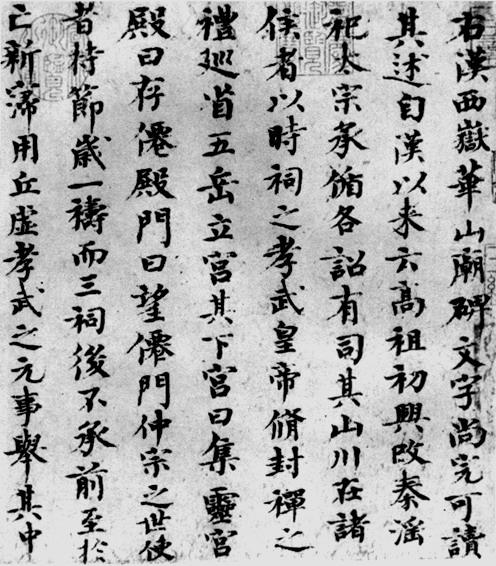 右漢西嶽華山廟碑文字尚完可讀
其述自漢以来云高祖初興改秦淫
祀太宗承循各詔有司其山川在諸
侯者以時祠之孝武皇帝脩封禪之
禮巡省五岳立宮其下宮曰集靈宮
殿曰存僊殿門曰望僊門仲宗之世使
者持節歲一禱而三祠後不承前至於
亡新寖用丘虛孝武之元事舉其中